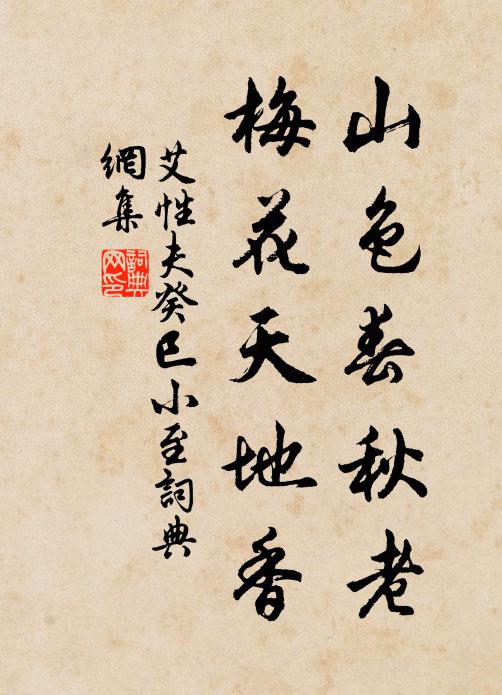 山色春秋老
梅花天地香
艾性夫癸巳小至詞典
網集
詞典
网印